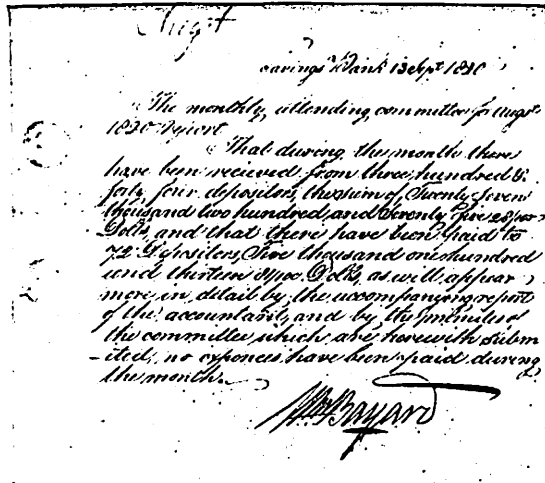 Augst
Savings Bank 13 Sept 1820
The monthly attending committee for Augst
1820 report
That during the month there
have been recieved from three hundred &
forty four depositors, the sum of Twenty Seven
thousand two hundred and Seventy five 28/100
Dolls, and that there have been paid to
72 Depositors, Five thousand one hundred
and thirteen /100 Dolls, as will appear
more in detail by the accompanying report
of the accountant, and by the minutes of
the committee which are herewith subm
-ited, no expences have been paid during
the month.
Wm Bayard